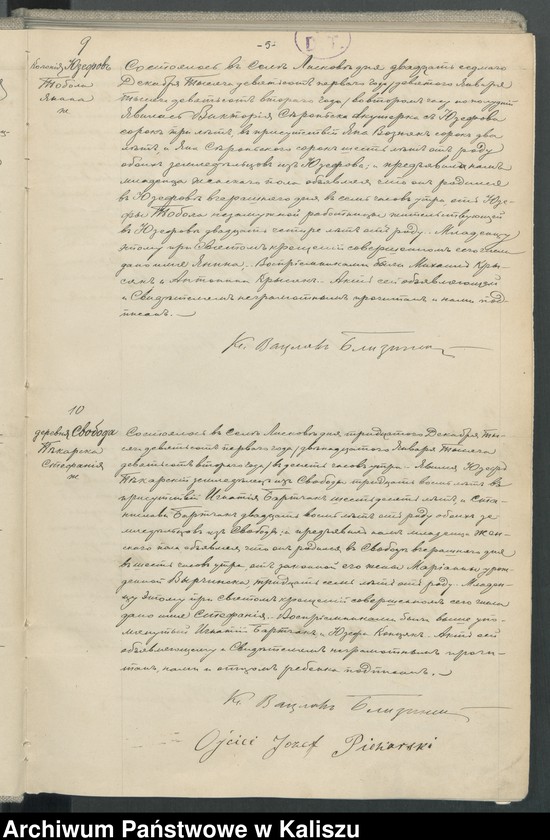 -5-
9
колонія Юзефовъ
Тобола
Янина
ж
Состоялось въ Селѣ дня двадцать седьмаго
Декабря Тысяча девятьсотъ перваго года /девятаго Января
Тысяча девятьсотъ втораго года/ во второмъ часу по полудни
Явилась Викторія акушерка съ Юзефова
сорокъ лѣтъ, въ присутствіи Яна Возняка сорокъ два
лѣтъ, и Яна сорокъ шесть лѣтъ отъ роду
обоихъ земледѣльцовъ изъ Юзефова; и предъявила намъ
младенца женскаго пола объявляя что онъ родился
въ Юзефовѣ вчерашняго дня въ семь часовъ утра отъ Юзе-
фы Тобола незамужной работницы жительствующей
въ Юзефовѣ двадцать четыре лѣтъ отъ роду. Младенцу
этому при Святомъ крещеніи совершенномъ сего числа
дано имя Янина. Воспріемниками были Михаилъ Кры-
сякъ и Антонина Крысякъ. Актъ сей объявляющей
и Свидѣтелямъ неграмотнымъ прочитанъ и нами под-
писанъ. —
Кс. Вацлавъ
10
деревня Свобода
Пѣкарска
Стефанія
ж
Состоялось въ Селѣ дня тридцатаго Декабря Ты-
сяча девятьсотъ перваго года /двѣнадцатаго Января Тысяча
девятьсотъ втораго года/ въ десять часовъ утра. Явился Юзефъ
Пѣкарскій земледѣлецъ изъ Свободы тридцать восемь лѣтъ въ
присутствіи Игнатія Бартчакъ шестьдесятъ лѣтъ, и Ста-
нислава Бартчакъ двадцать восемь лѣтъ отъ роду обоихъ зе-
мледѣльцовъ изъ Свободы; и предъявилъ намъ младенца жен-
скаго пола объявляя, что онъ родился въ Свободѣ вчерашняго дня
въ шесть часовъ утра отъ законной его жены Маріанны урож-
денной тридцать семь лѣтъ отъ роду. Младен-
цу этому при Святомъ крещеніи совершенномъ сего числа
дано имя Стефанія. Воспріемниками были выше упо-
мянутый Игнатій Бартчакъ, и Юзефа Акт сей
объявляющему и Свидѣтелямъ неграмотнымъ прочи-
танъ, нами и отцомъ ребенка подписанъ. —
Кс. Вацлавъ
Ojciec Jozef Piekarski
Archiwum Państwowe w Kaliszu